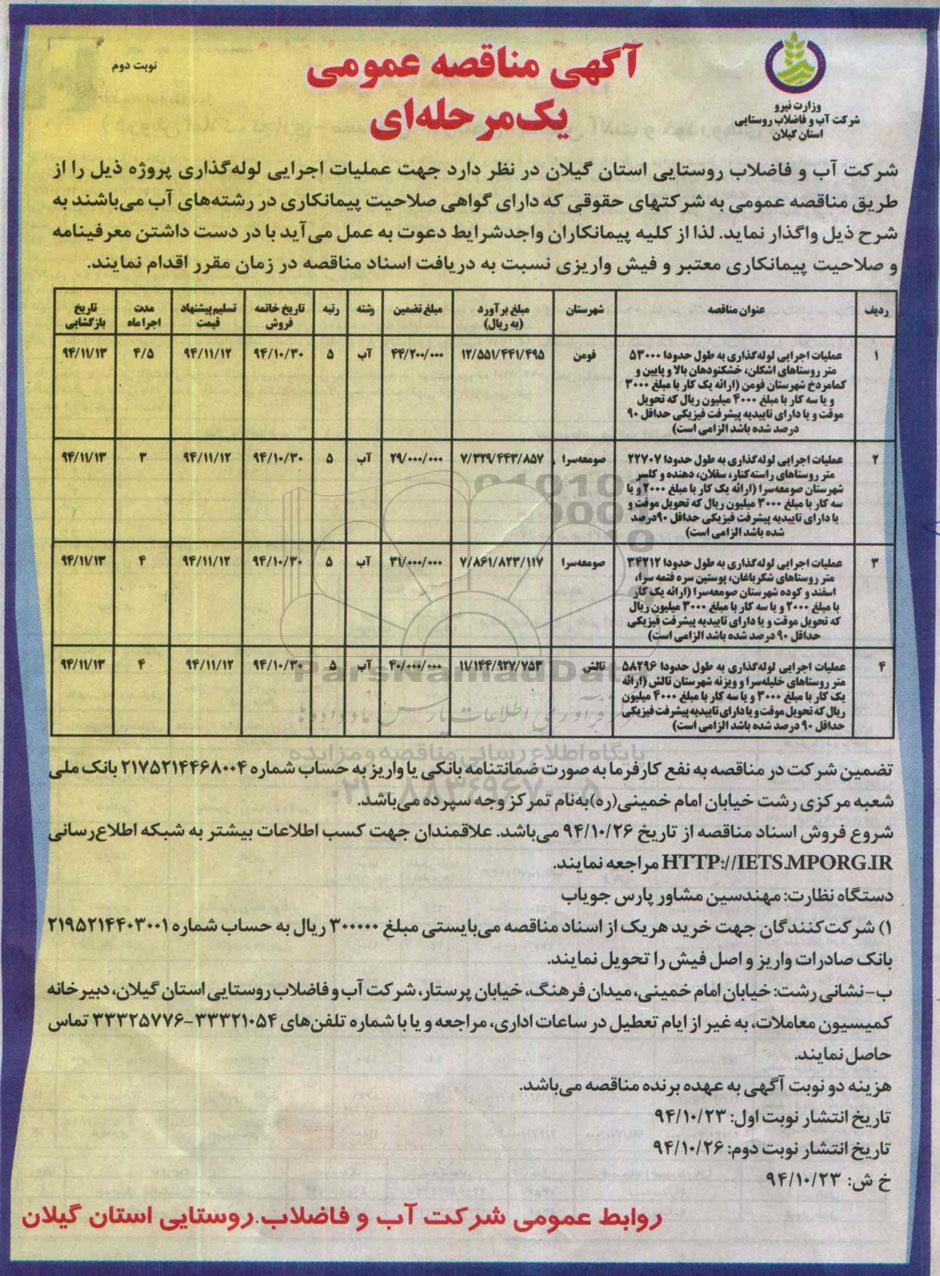 آگهی مناقصه عمومی
یک‌مرحله‌ای
نوبت دوم
وزارت نیرو
شرکت آب و فاضلاب روستایی
استان گیلان
شرکت آب و فاضلاب روستایی استان گیلان در نظر دارد جهت عملیات اجرایی لوله‌گذاری پروژه ذیل را از
طریق مناقصه عمومی به شرکتهای حقوقی که دارای گواهی صلاحیت پیمانکاری در رشته‌های آب می‌باشند به
شرح ذیل واگذار نماید. لذا از کلیه پیمانکاران واجدشرایط دعوت به عمل می‌آید با در دست داشتن معرفینامه
و صلاحیت پیمانکاری معتبر و فیش واریزی نسبت به دریافت اسناد مناقصه در زمان مقرر اقدام نمایند.
ردیف عنوان مناقصه شهرستان مبلغ برآورد (به ریال) مبلغ تضمین رشته رتبه تاریخ خاتمه فروش تسلیم پیشنهاد قیمت مدت اجرا ماه تاریخ بازگشایی
۱ عملیات اجرایی لوله‌گذاری به طول حدودا ۵۳۰۰۰ فومن ۱۲/۵۵۱/۴۴۱/۴۹۵ ۴۴/۲۰۰/۰۰۰ آب ۵ ۹۴/۱۰/۳۰ ۹۴/۱۱/۱۲ ۴/۵ ۹۴/۱۱/۱۳
متر روستاهای اشکلن، خشکنودهان بالا و پایین و
کمامردخ شهرستان فومن (ارائه یک کار با مبلغ ۳۰۰۰
و یا سه کار با مبلغ ۴۰۰۰ میلیون ریال که تحویل
موقت و یا دارای تاییدیه پیشرفت فیزیکی حداقل ۹۰
درصد شده باشد الزامی است)
۲ عملیات اجرایی لوله‌گذاری به طول حدودا ۲۲۷۰۷ صومعه‌سرا ۷/۳۲۹/۴۴۳/۸۵۷ ۲۹/۰۰۰/۰۰۰ آب ۵ ۹۴/۱۰/۳۰ ۹۴/۱۱/۱۲ ۳ ۹۴/۱۱/۱۳
متر روستاهای راسته‌کنار، سقلان، دهنده و کلسر
شهرستان صومعه‌سرا (ارائه یک کار با مبلغ ۲۰۰۰ و یا
سه کار با مبلغ ۳۰۰۰ میلیون ریال که تحویل موقت و
یا دارای تاییدیه پیشرفت فیزیکی حداقل ۹۰درصد
شده باشد الزامی است)
۳ عملیات اجرایی لوله‌گذاری به طول حدودا ۳۴۲۱۲ صومعه‌سرا ۷/۸۶۱/۸۲۳/۱۱۷ ۳۱/۰۰۰/۰۰۰ آب ۵ ۹۴/۱۰/۳۰ ۹۴/۱۱/۱۲ ۴ ۹۴/۱۱/۱۳
متر روستاهای شکرباغان، پوستین سره فتمه سرا،
اسفند و کوده شهرستان صومعه‌سرا (ارائه یک کار
با مبلغ ۲۰۰۰ و یا سه کار با مبلغ ۳۰۰۰ میلیون ریال
که تحویل موقت و یا دارای تاییدیه پیشرفت فیزیکی
حداقل ۹۰ درصد شده باشد الزامی است)
۴ عملیات اجرایی لوله‌گذاری به طول حدودا ۵۸۲۹۶ تالش ۱۱/۱۴۴/۹۲۷/۷۵۳ ۴۰/۰۰۰/۰۰۰ آب ۵ ۹۴/۱۰/۳۰ ۹۴/۱۱/۱۲ ۴ ۹۴/۱۱/۱۳
متر روستاهای خلیله‌سرا و ویزنه شهرستان تالش (ارائه
یک کار با مبلغ ۳۰۰۰ و یا سه کار با مبلغ ۴۰۰۰ میلیون
ریال که تحویل موقت و یا دارای تاییدیه پیشرفت فیزیکی
حداقل ۹۰ درصد شده باشد الزامی است)
ParsNamadData
پایگاه اطلاع رسانی مناقصه و مزایده
تضمین شرکت در مناقصه به نفع کارفرما به صورت ضمانتنامه بانکی یا واریز به حساب شماره ۲۱۷۵۲۱۴۴۶۸۰۰۴ بانک ملی
شعبه مرکزی رشت خیابان امام خمینی(ره)به‌نام تمرکز وجه سپرده می‌باشد.
شروع فروش اسناد مناقصه از تاریخ ۹۴/۱۰/۲۶ می‌باشد. علاقمندان جهت کسب اطلاعات بیشتر به شبکه اطلاع‌رسانی
HTTP://IETS.MPORG.IR مراجعه نمایند.
دستگاه نظارت: مهندسین مشاور پارس جویاب
۱) شرکت‌کنندگان جهت خرید هریک از اسناد مناقصه می‌بایستی مبلغ ۳۰۰۰۰۰ ریال به حساب شماره ۲۱۹۵۲۱۴۴۰۳۰۰۱
بانک صادرات واریز و اصل فیش را تحویل نمایند.
ب-نشانی رشت: خیابان امام خمینی، میدان فرهنگ، خیابان پرستار، شرکت آب و فاضلاب روستایی استان گیلان، دبیرخانه
کمیسیون معاملات، به غیر از ایام تعطیل در ساعات اداری، مراجعه و یا با شماره تلفن‌های ۳۳۳۲۱۰۵۴-۳۳۳۲۵۷۷۶ تماس
حاصل نمایند.
هزینه دو نوبت آگهی به عهده برنده مناقصه می‌باشد.
تاریخ انتشار نوبت اول: ۹۴/۱۰/۲۳
تاریخ انتشار نوبت دوم: ۹۴/۱۰/۲۶
خ ش: ۹۴/۱۰/۲۳
روابط عمومی شرکت آب و فاضلاب روستایی استان گیلان